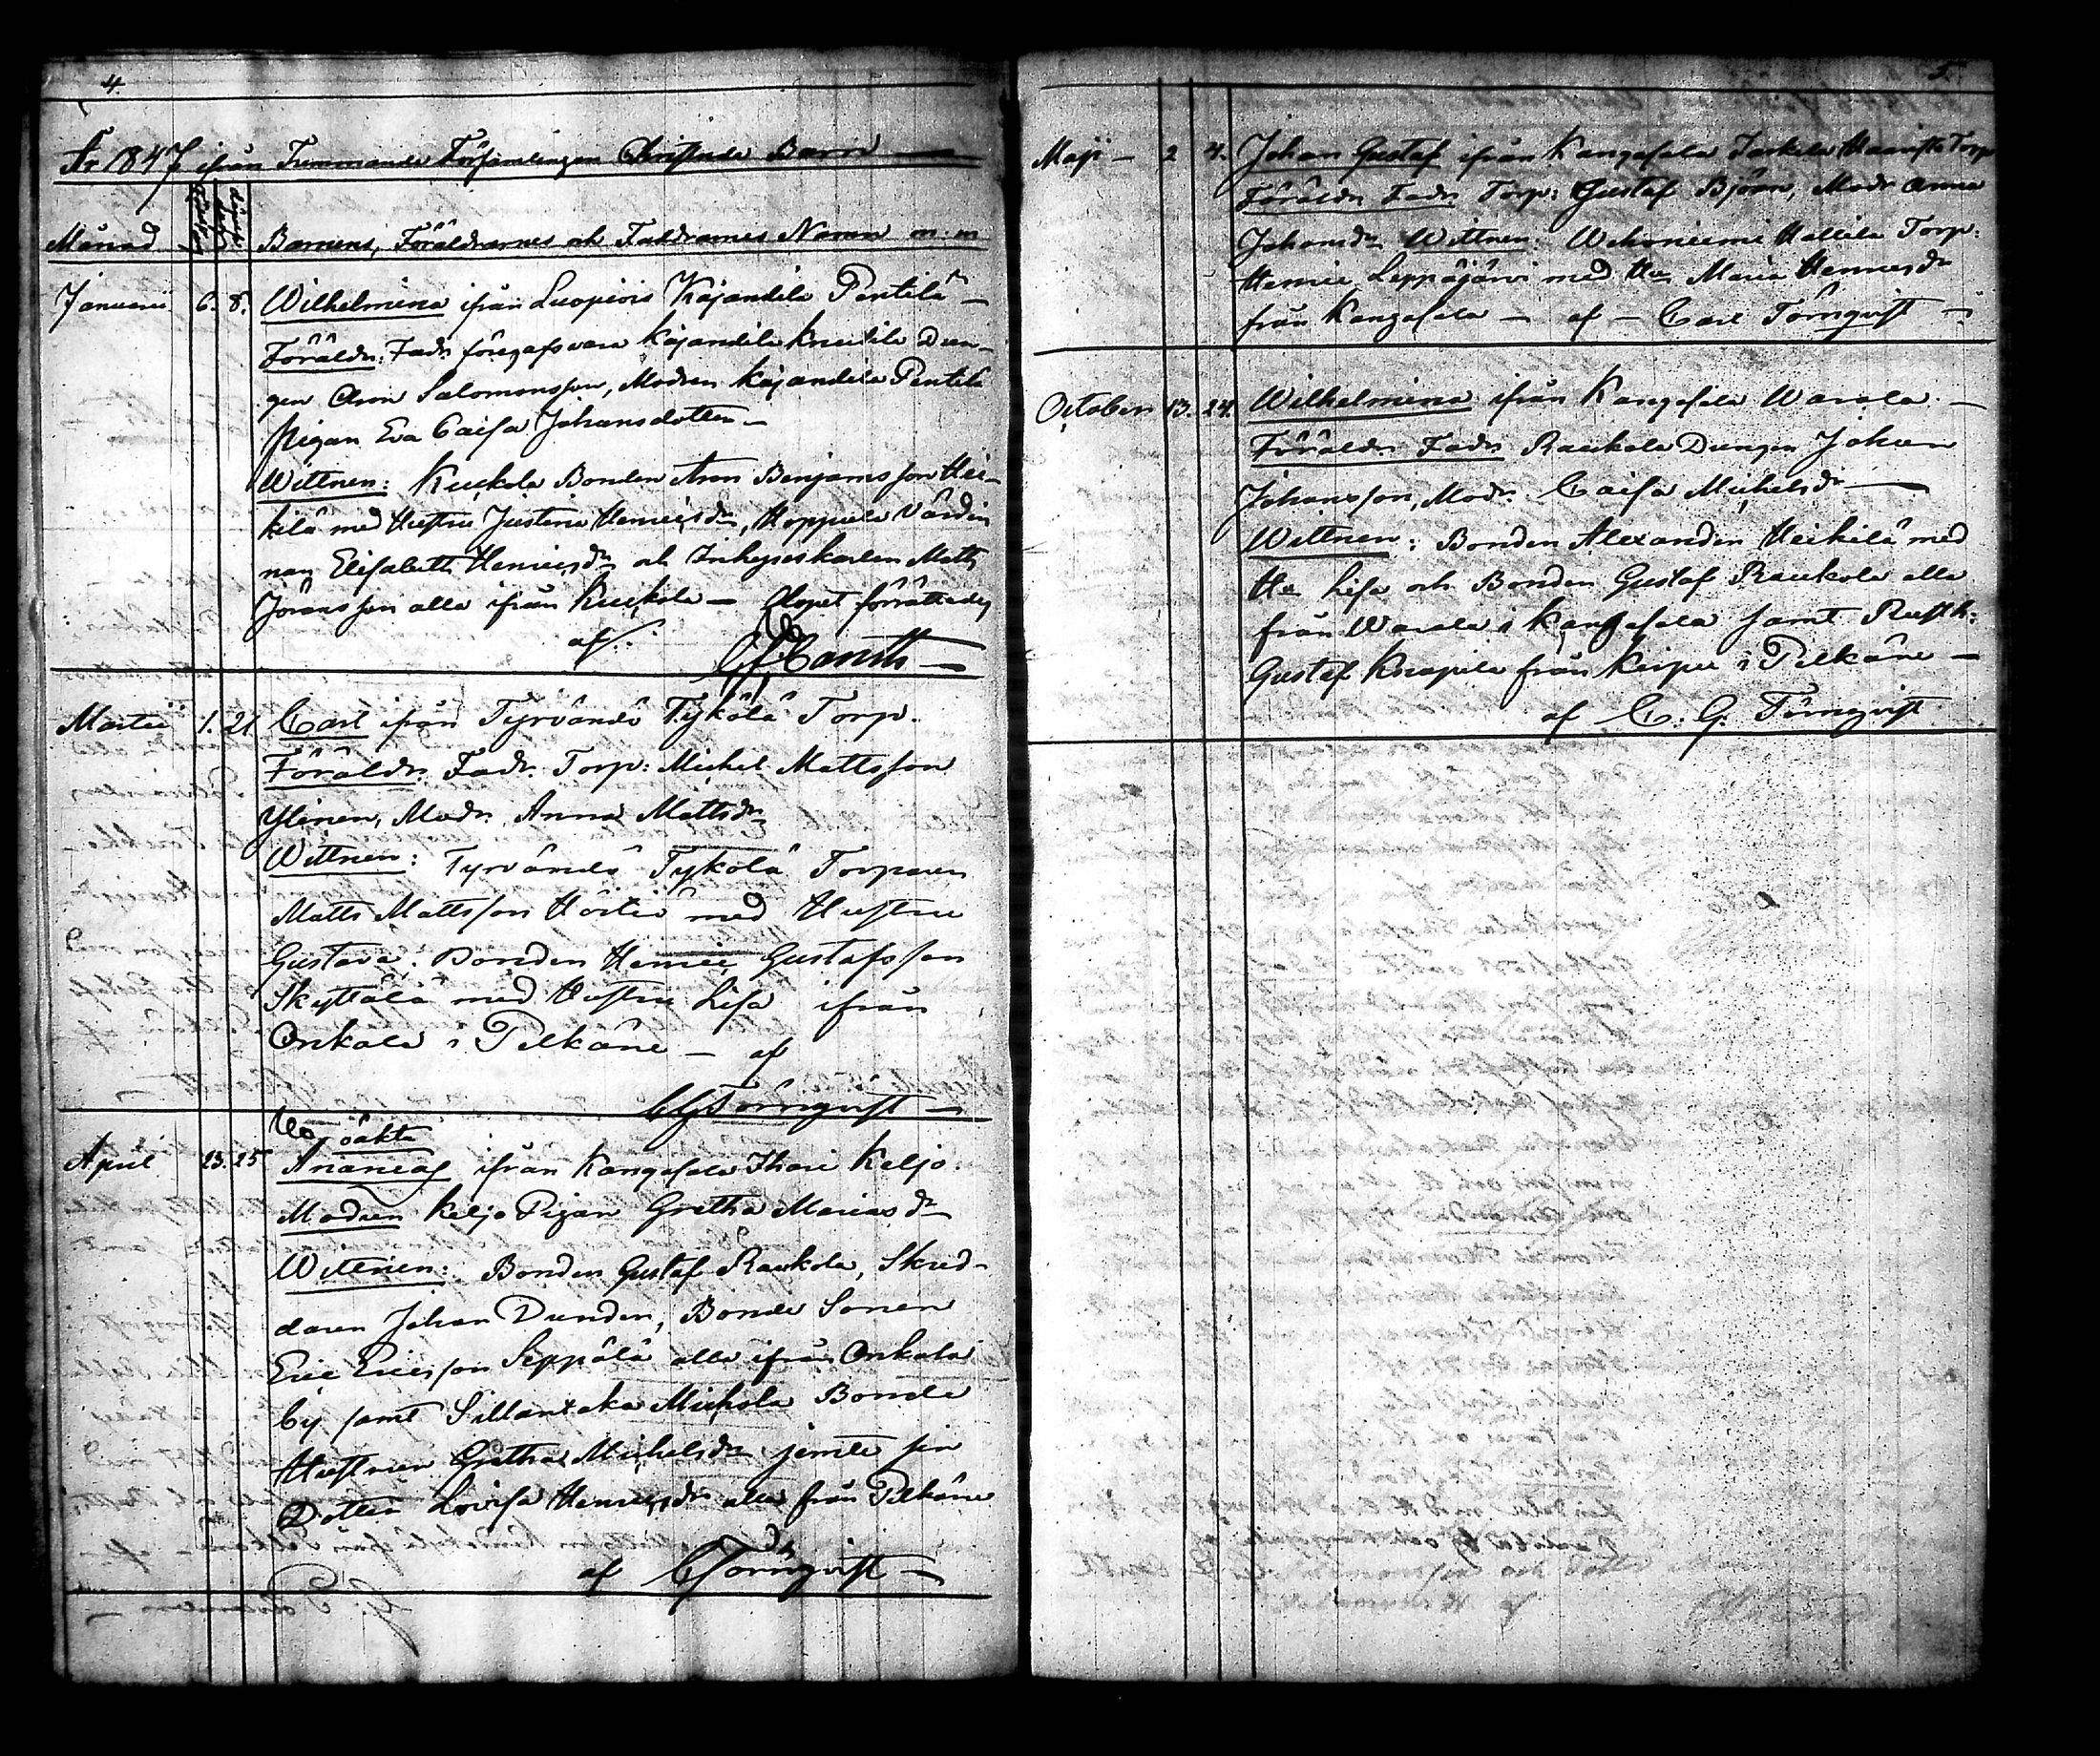 4
År 1847 ifrån Främmande Församlingar Christnade Barn
Månad Födelse Döpelse Barnens, Föräldrarnes och Faddrarnes Namn m: m
Januarii 6. 8. Wilhelmina ifrån Luopiois Kajandila Pentilä –
Föräldr: Fadr föregafs vara Kajandila Knuutila Dren-
gen Aron Salomonsson, Modren Kajandila Pentilä
pigan Eva Caisa Johansdotter –
Wittnen: Kuckola Bonden Aron Benjamsson Hei-
kilä med Hustru Justina Henricsdr, Hoppula Värdin
nan Elisabeth Henricsdr och Inhyseskarlen Matts
Jöransson alla ifrån Kuckola – Dopet förrättades
af
Martii 1. 21 Carl ifrån Tyrvändö Tykölä Torp.
Föräldr. Fadr. Torp: Michel Mattsson
Ylinen, Modr. Anna Mattsdr
Wittnen: Tyrvändö Tykölä Torparen
Matts Mattsson Hörtiö med Hustru
Gustava; Bonden Henric Gustafsson
Skyttälä med Hustru Lisa ifrån
Onkala i Pelkäne – af
CG Törnqvist –
Oäkta
April 23. 25 Ananias ifrån Kangasala Ihari Keljo.
Modren Keljo Pigan Gretha Mariasdr
Wittnen: Bonden Gustaf Raukola, Skred-
daren Johan Dunder, Bonde Sonen
Eric Ericsson Seppälä alla ifrån Onkala
by samt Sillantaka Michola Bonde
Hustrun Gretha Michelsdr jemte sin
Dotter Lovisa Henricsdr alla från Pelkäne
af CG Törnqvist –
5.
Maji – 2 4. Johan Gustaf ifrån Kangasala Torp
Föräldr Fadr Torp: Gustaf Björn, Modr Anna
Johansdr Wittnen: Wehoniemi Hallila Torp:
Henric Leppäjärvi med Hu Maria Henricsdr
från Kangasala – af – Carl Törnqvist –
October 13. 24. Wilhelmina ifrån Kangasala Warala. –
Föräldr Fadr Raukola Drengen Johan
Johansson, Modr. Caisa Michelsdr –
Wittnen: Bonden Alexander Heikilä med
Hu Lisa och Bonden Gustaf Raukola alla
från Warala i Kangasala samt Rusth:
Gustaf Knapila från Kirpu i Pelkäne –
af C. G. Törnqvist